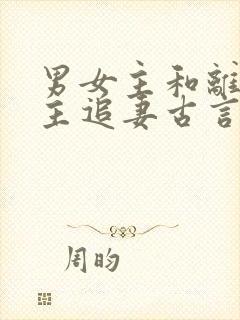 男女主和離
主追妻古言
周昀